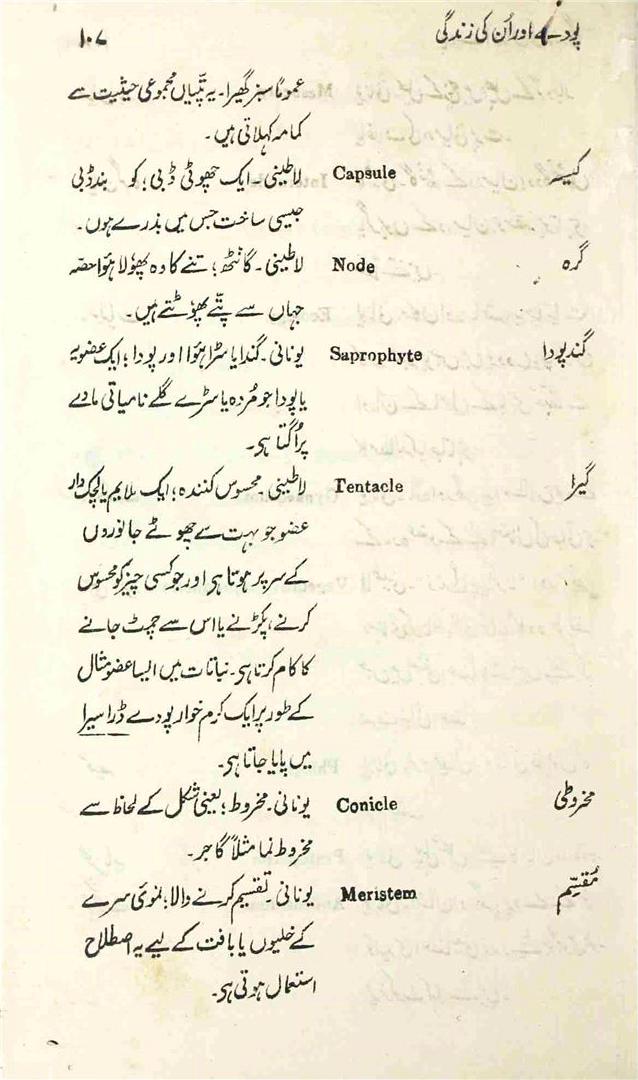 پودے اور اُن کی زندگی ۱۰۷
عموماً سبز گھیرا۔ یہ پتّیاں مجموعی حیثیت سے
کمامہ کہلاتی ہیں۔
کیسہ Capsule لاطینی۔ ایک چھوٹی ڈبی؛ کو بند ڈبی
جیسی ساخت جس میں بذرے ہوں۔
گرہ Node لاطینی۔ گانٹھ؛ تنے کا وہ پھولا ہؤا حصّہ
جہاں سے پتّے پھوٹتے ہیں۔
گند پودا Saprophyte یونانی۔ گندا یا سڑا ہؤا اور پودا؛ ایک عضویہ
یا پودا جو مُردہ یا سڑے گلے نامیاتی مادے
پر اُگتا ہی۔
گیرا Tentacle لاطینی۔ محسوس کنندہ؛ ایک ملایم یا لچک دار
عضو جو بہت سے چھوٹے جانوروں
کے سر پر ہوتا ہی اور جو کسی چیز کو محسوس
کرنے، پکڑنے یا اس سے چمٹ جانے
کا کام کرتا ہی۔ نباتات میں ایسا عضو مثال
کے طور پر ایک کرم خوار پودے ڈراسیرا
میں پایا جاتا ہی۔
مخروطی Conicle یونانی۔ مخروط؛ یعنی شکل کے لحاظ سے
مخروط نما مثلاً گاجر۔
مُقسِّم Meristem یونانی۔ تقسیم کرنے والا؛ نموئی سرے
کے خلیوں یا بافت کے لیے یہ اصطلاح
استعمال ہوتی ہی۔